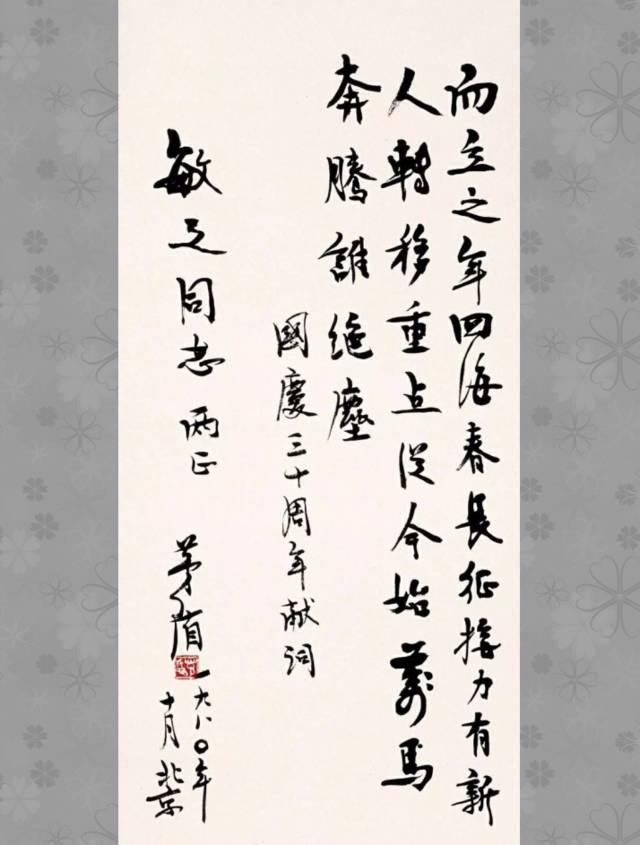 而立之年四海春長征接力有新
人轉移重点從今始萬馬
奔騰誰絕塵
國慶三十周年献詞
敏之同志 两正
茅盾
一九八〇年
十月北京